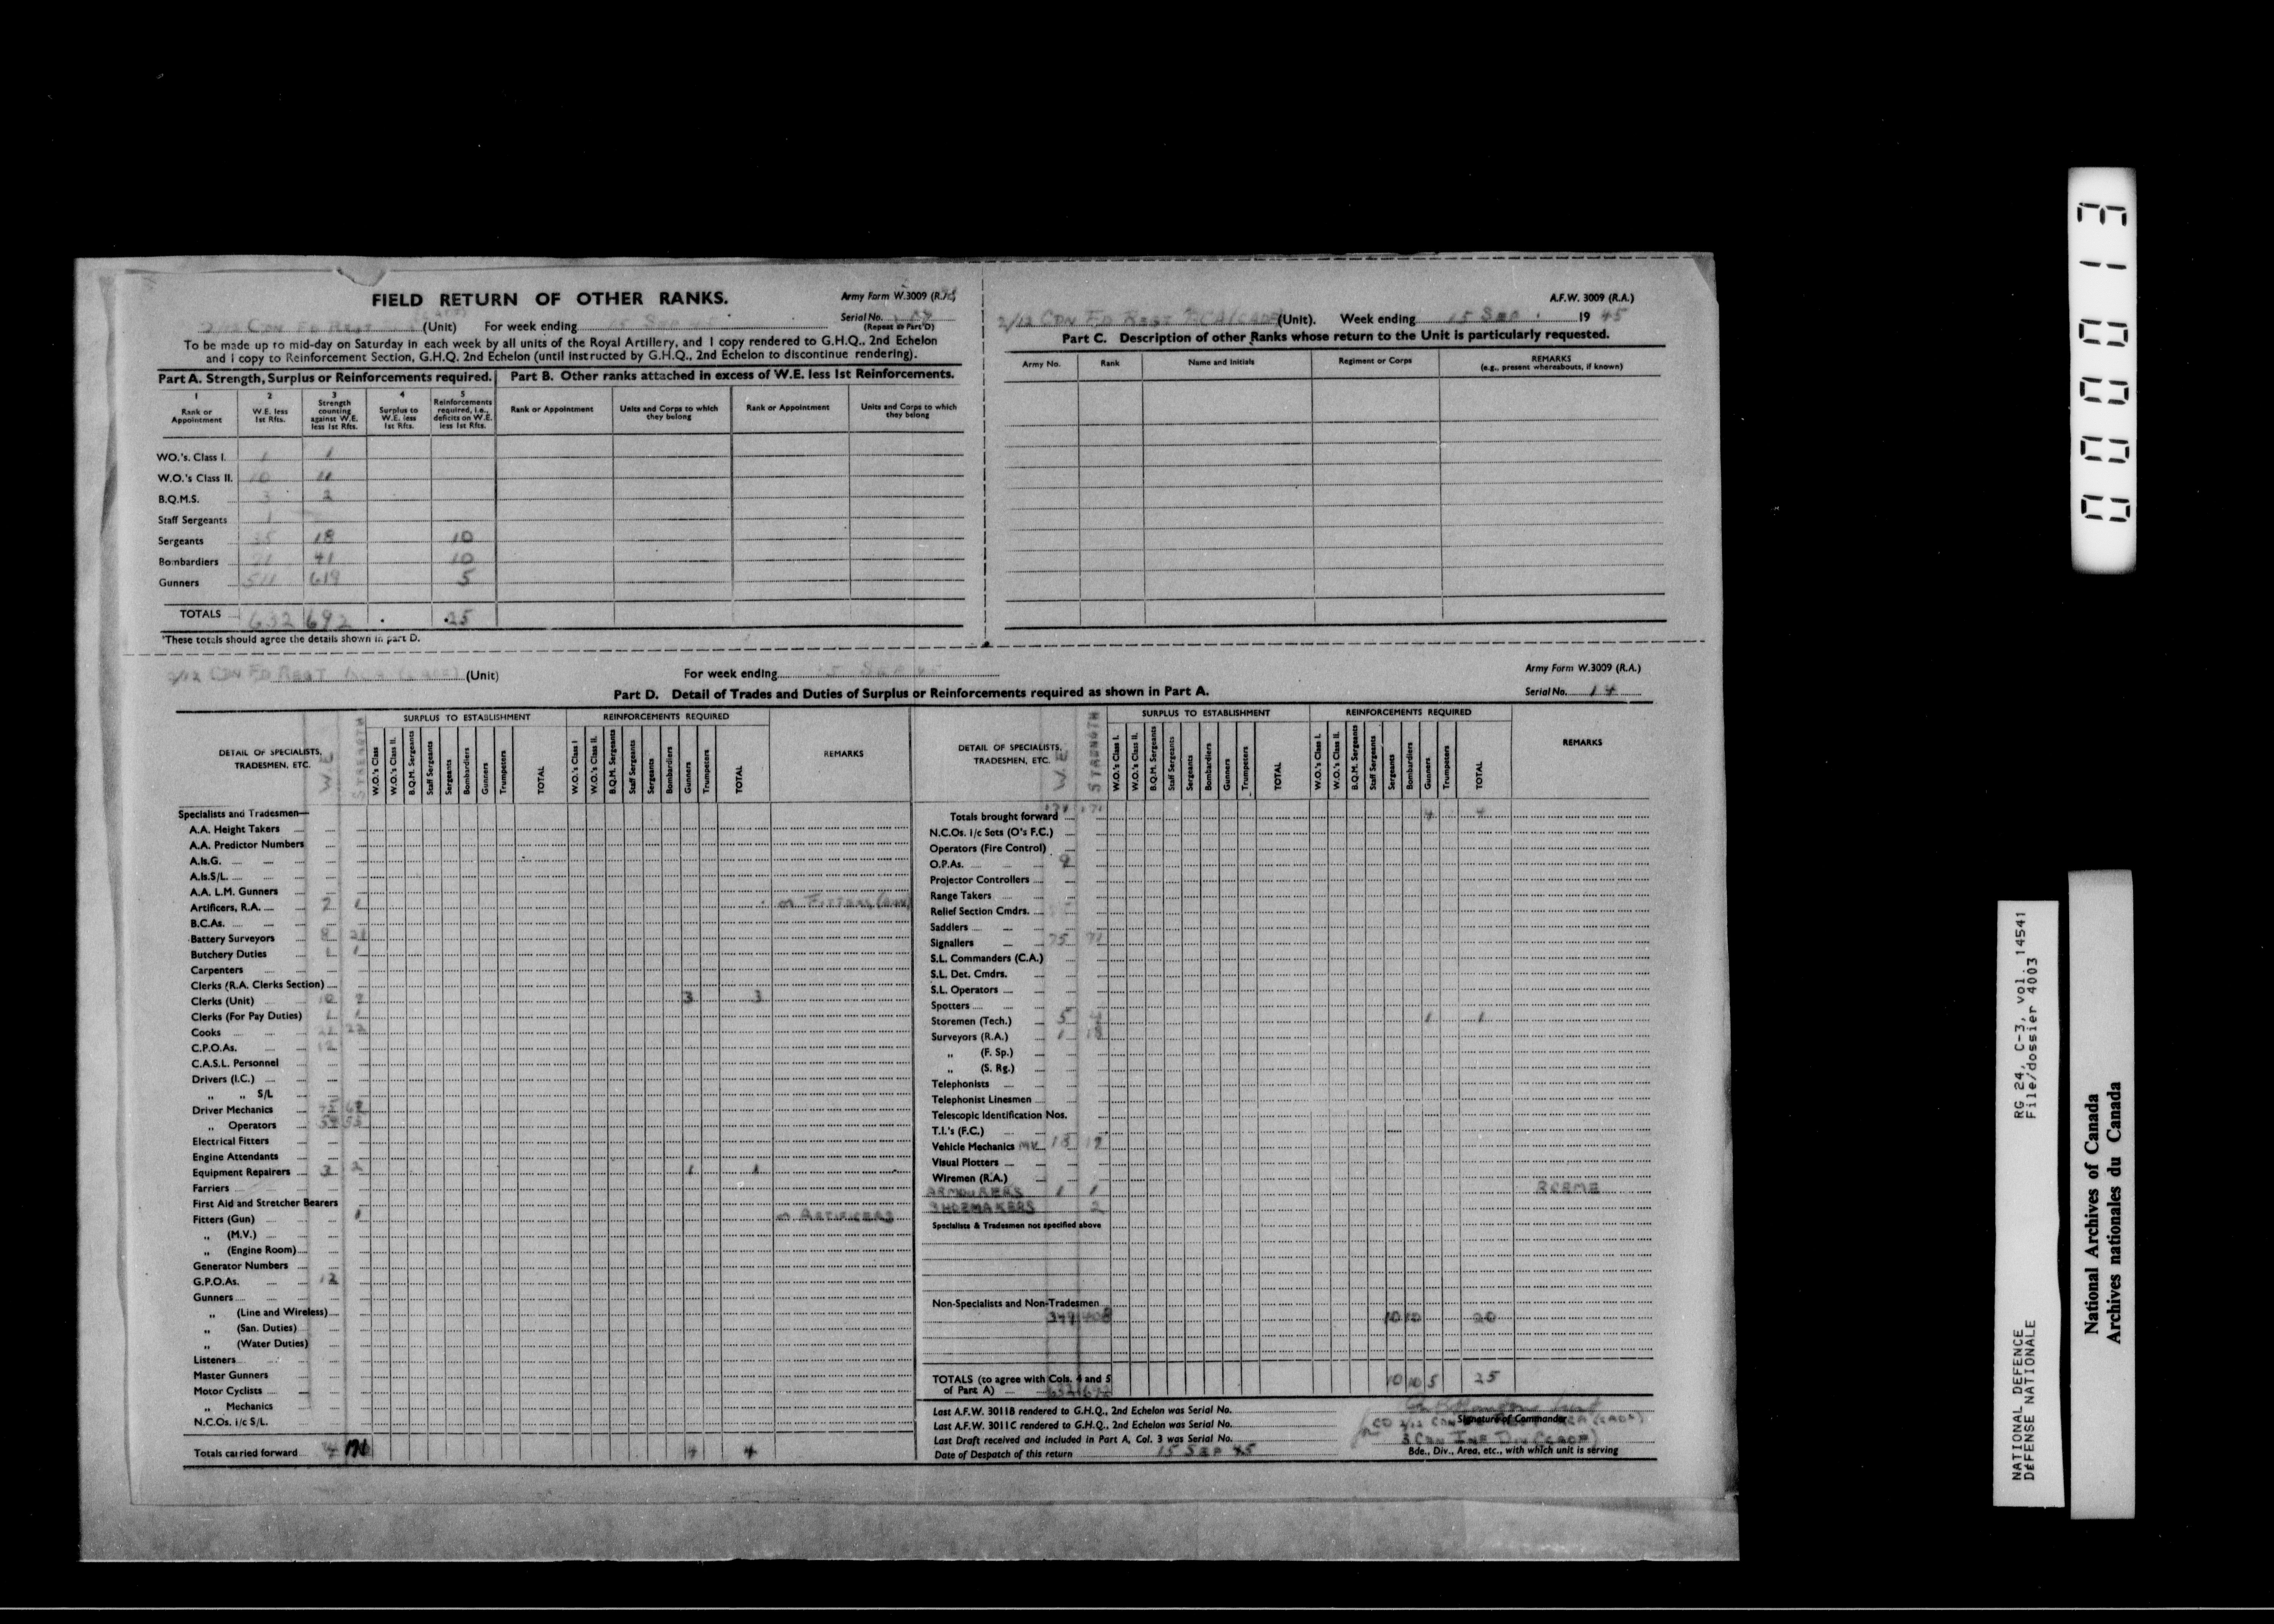 FIELD RETURN OF OTHER RANKS.
Army Form W.3009 (R.A.)
Serial No. 14
(Repeat in Part D)
2/12 CDN FD REGT (Unit) For week ending 15 SEP 45
To be made up to mid-day on Saturday in each week by all units of the Royal Artillery, and 1 copy rendered to G.H.Q., 2nd Echelon
and 1 copy to Reinforcement Section, G.H.Q. 2nd Echelon (until instructed by G.H.Q., 2nd Echelon to discontinue rendering).
Part A. Strength, Surplus or Reinforcements required.
1 Rank or Appointment
2 W.E. less 1st Rfts.
3 Strength counting against W.E. less 1st Rfts.
4 Surplus to W.E. less 1st Rfts.
5 Reinforcements required, i.e., deficits on W.E. less 1st Rfts.
WO.'s. Class I. 1 1
W.O.'s Class II. 10 11
B.Q.M.S. 3 2
Staff Sergeants 1
Sergeants 35 18 10
Bombardiers 71 41 10
Gunners 511 619 5
TOTALS 632 692 25
*These totals should agree the details shown in part D.
Part B. Other ranks attached in excess of W.E. less 1st Reinforcements.
Rank or Appointment
Units and Corps to which they belong
Rank or Appointment
Units and Corps to which they belong
A.F.W. 3009 (R.A.)
2/12 CDN FD REGT RCA (CAOF) (Unit). Week ending 15 SEP 1945
Part C. Description of other Ranks whose return to the Unit is particularly requested.
Army No.
Rank
Name and Initials
Regiment or Corps
REMARKS
(e.g., present whereabouts, if known)
2/12 CDN FD REGT RCA (CAOF) (Unit) For week ending 15 SEP 45
Army Form W.3009 (R.A.)
Part D. Detail of Trades and Duties of Surplus or Reinforcements required as shown in Part A.
Serial No. 14
DETAIL OF SPECIALISTS, TRADESMEN, ETC.
W.E.
STRENGTH
SURPLUS TO ESTABLISHMENT
W.O.'s Class
W.O.'s Class II.
B.Q.M. Sergeants
Staff Sergeants
Sergeants
Bombardiers
Gunners
Trumpeters
TOTAL
REINFORCEMENTS REQUIRED
W.O.'s Class I
W.O.'s Class II.
B.Q.M. Sergeants
Staff Sergeants
Sergeants
Bombardiers
Gunners
Trumpeters
TOTAL
REMARKS
Specialists and Tradesmen—
A.A. Height Takers
A.A. Predictor Numbers
A.Is.G.
A.Is.S/L.
A.A. L.M. Gunners
Artificers, R.A. 2 1 or FITTERS (GUN)
B.C.As.
Battery Surveyors 8 21
Butchery Duties 1 1
Carpenters
Clerks (R.A. Clerks Section)
Clerks (Unit) 10 7 3 3
Clerks (For Pay Duties) 1 1
Cooks 21 22
C.P.O.As. 12
C.A.S.L. Personnel
Drivers (I.C.)
„ „ S/L
Driver Mechanics
„ Operators
Electrical Fitters
Engine Attendants
Equipment Repairers 3 2 1 1
Farriers
First Aid and Stretcher Bearers
Fitters (Gun) 1 or ARTIFICERS
„ (M.V.)
„ (Engine Room)
Generator Numbers
G.P.O.As. 12
Gunners
„ (Line and Wireless)
„ (San. Duties)
„ (Water Duties)
Listeners
Master Gunners
Motor Cyclists
„ Mechanics
N.C.Os. i/c S/L.
Totals carried forward 4 4
DETAIL OF SPECIALISTS, TRADESMEN, ETC.
W.E.
STRENGTH
SURPLUS TO ESTABLISHMENT
W.O.'s Class I.
W.O.'s Class II.
B.Q.M. Sergeants
Staff Sergeants
Sergeants
Bombardiers
Gunners
Trumpeters
TOTAL
REINFORCEMENTS REQUIRED
W.O.'s Class I.
W.O.'s Class II.
B.Q.M. Sergeants
Staff Sergeants
Sergeants
Bombardiers
Gunners
Trumpeters
TOTAL
REMARKS
Totals brought forward 4 4
N.C.Os. i/c Sets (O's F.C.)
Operators (Fire Control)
O.P.As. 9
Projector Controllers
Range Takers
Relief Section Cmdrs.
Saddlers
Signallers 75 71
S.L. Commanders (C.A.)
S.L. Det. Cmdrs.
S.L. Operators
Spotters
Storemen (Tech.) 5 4 1 1
Surveyors (R.A.) 1 18
„ (F. Sp.)
„ (S. Rg.)
Telephonists
Telephonist Linesmen
Telescopic Identification Nos.
T.I.'s (F.C.)
Vehicle Mechanics MV 18 19
Visual Plotters
Wiremen (R.A.)
ARMOURERS 1 1 RCEME
SHOEMAKERS 2
Specialists & Tradesmen not specified above
Non-Specialists and Non-Tradesmen
349 408 10 10 20
TOTALS (to agree with Cols. 4 and 5
of Part A) 632 692 10 10 5 25
Last A.F.W. 3011B rendered to G.H.Q., 2nd Echelon was Serial No.
Last A.F.W. 3011C rendered to G.H.Q., 2nd Echelon was Serial No.
Last Draft received and included in Part A, Col. 3 was Serial No.
Date of Despatch of this return 15 SEP 45
Signature of Commander
3 CDN INF DIV (CAOF)
Bde., Div., Area, etc., with which unit is serving
000013
NATIONAL DEFENCE
DÉFENSE NATIONALE
RG 24, C-3, vol. 14541
File/dossier 4003
National Archives of Canada
Archives nationales du Canada